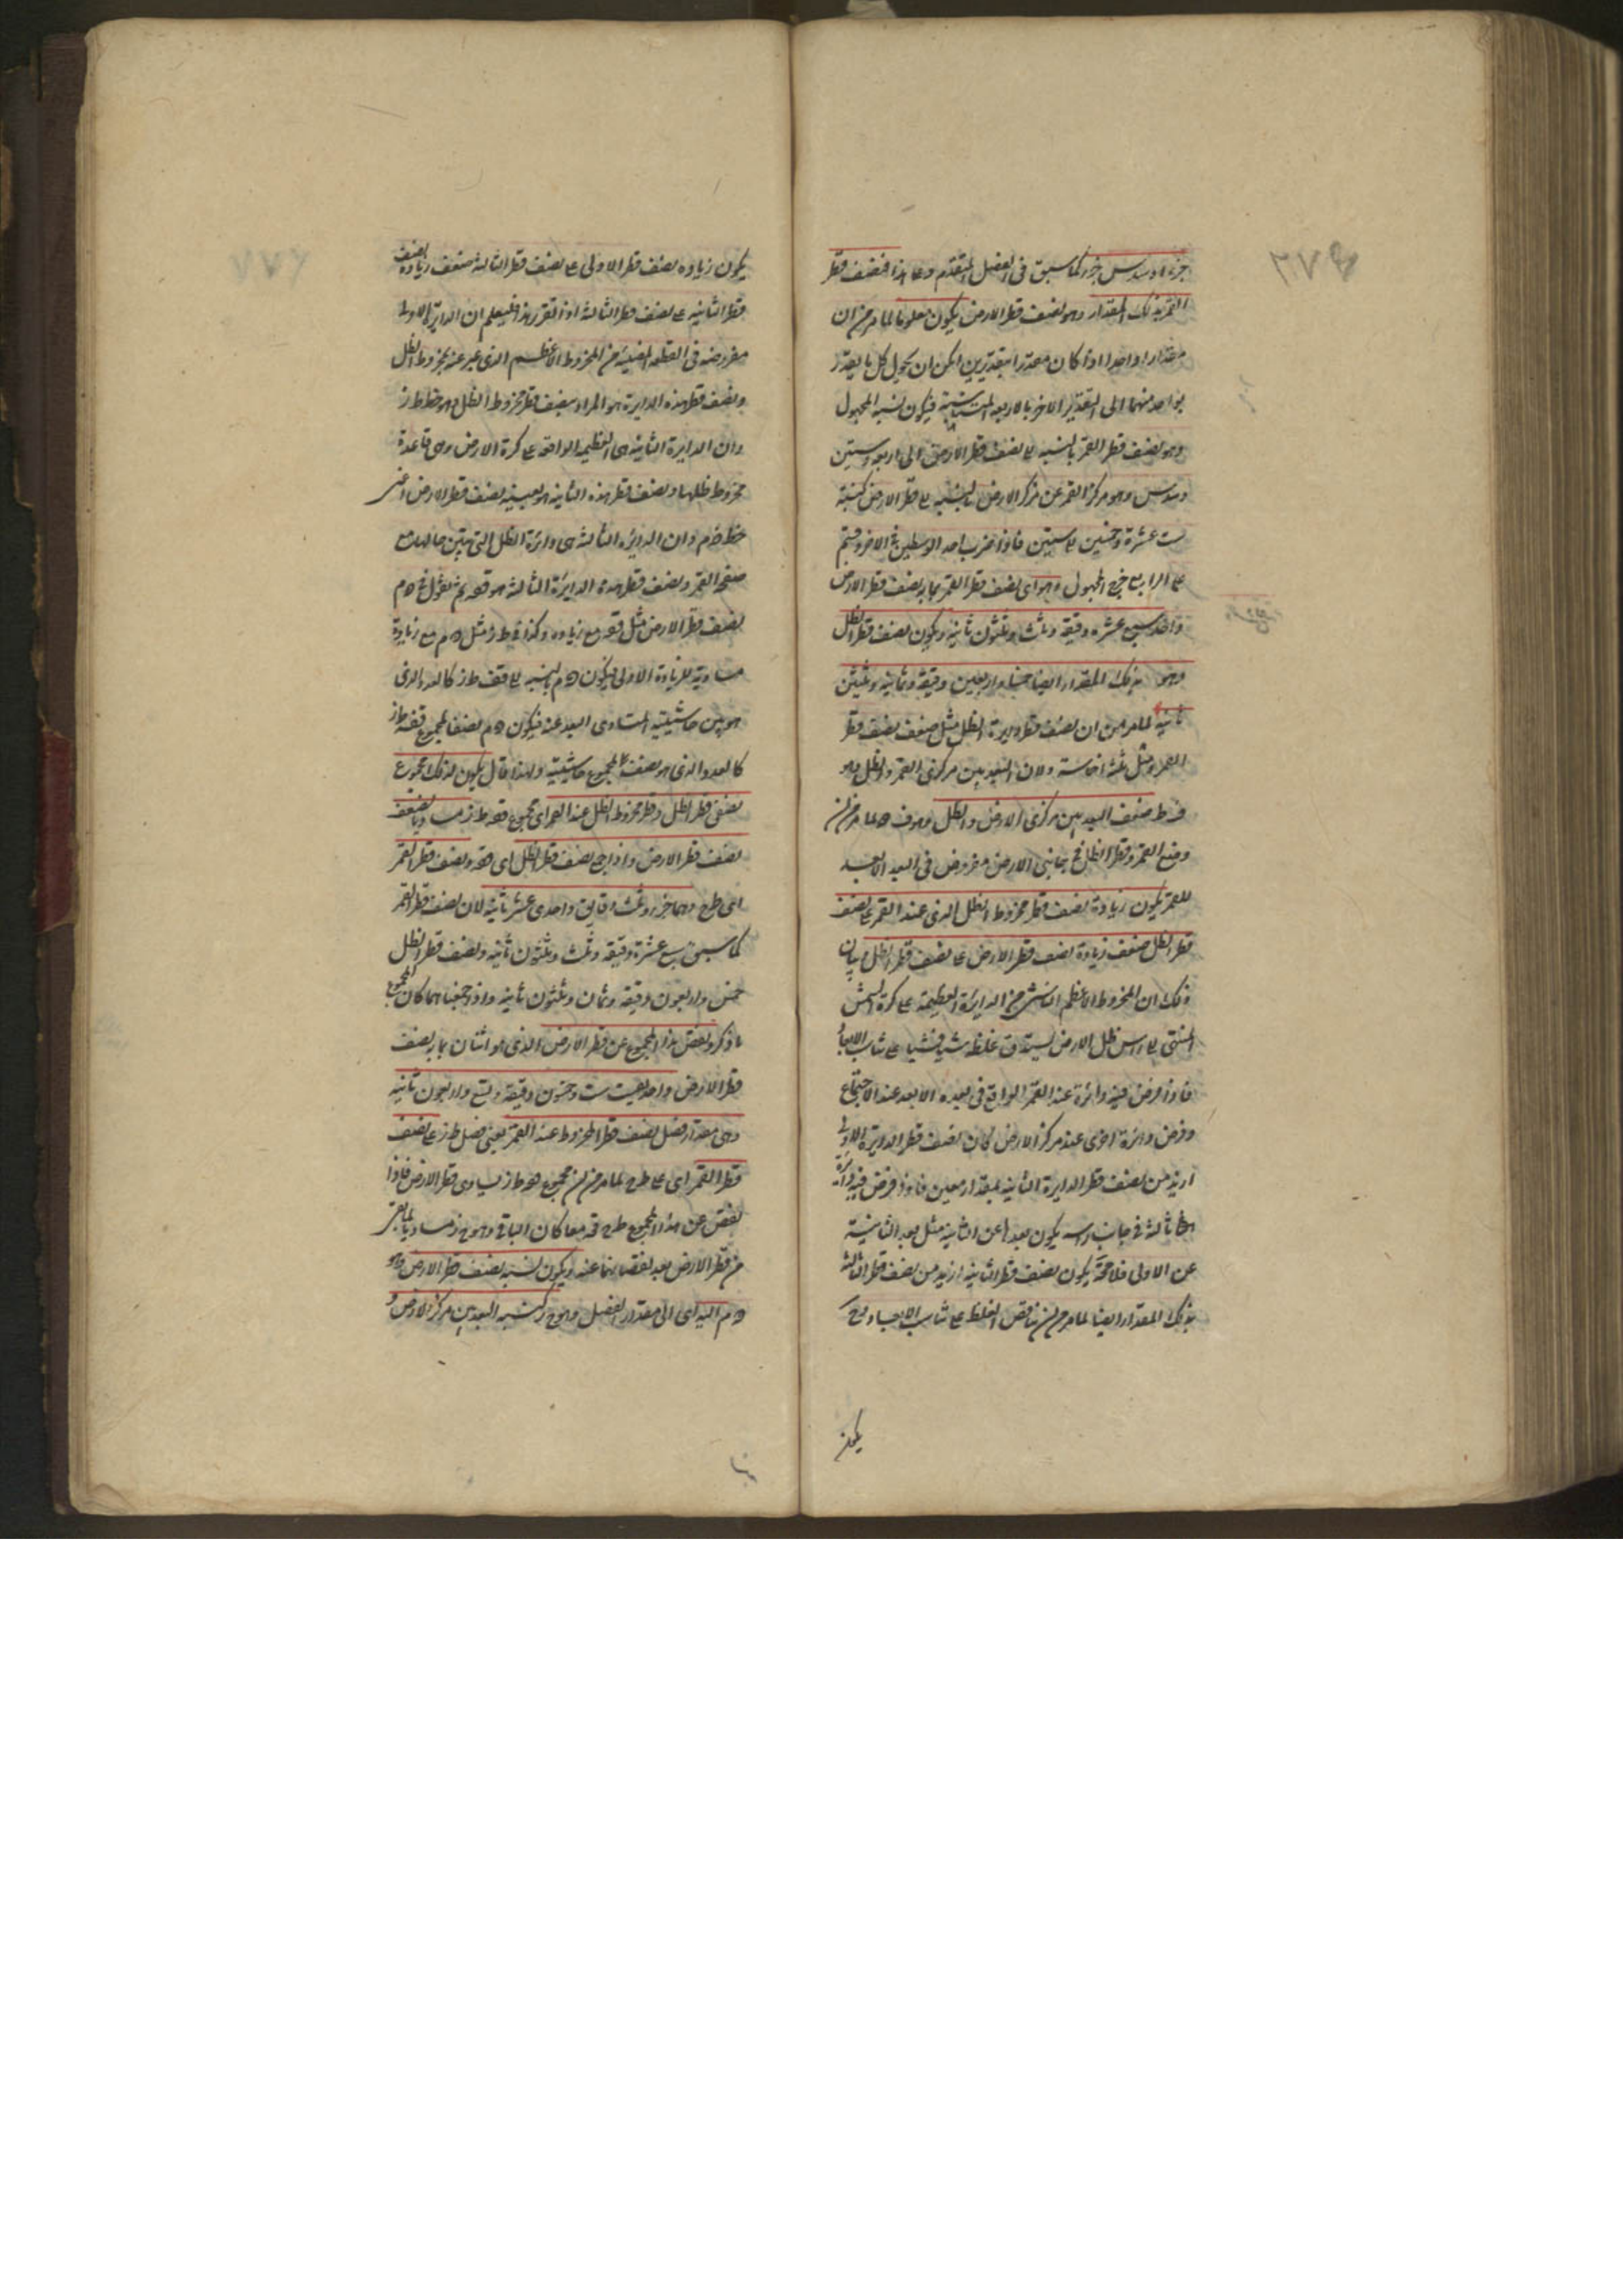 جزءا وسدس جزء كما سبق فى الفصل المتقدم وعلى هذا فنصف قطر
القمر بذلك المقدار وهو نصف قطر الارض يكون معلوما لما مر من ان
مقدارا واحدا اذا كان مقدرا بتقديرين امكن ان يحول كل ما يقدر
بواحد منهما الى التقدير الاخر بالاربعة المتناسبة فيكون نسبة المجهول
وهو نصف قطر القمر بالنسبة الى نصف قطر الارض الى اربعة وستين
وسدس وهو مركز القمر عن مركز الارض بالنسبة الى قطر الارض كنسبة
ست عشرة وخمسين الى ستين فاذا ضرب احد الوسطين فى الاخر وقسم
على الرابع خرج المجهول وهو اى نصف قطر القمر بما به نصف قطر الارض
واحد سبع عشرة دقيقة وثلث وثلثون ثانية ويكون نصف قطر الظل
وهو بذلك المقدار ايضا خمسا واربعين دقيقة وثمانية وثلثين
ثانية لما مر من ان نصف قطر دايرة الظل مثل ضعف نصف قطر
القمر ومثل ثلثة اخماسه ولان البعد بين مركزى القمر والظل وهو
ضعف البعد بين مركزى الارض والظل وهو لما مر من ان
وضع القمر وقطر الظل فى جانبى الارض مفروض فى البعد الابعد
للقمر يكون زيادة نصف قطر مخروط الظل الذى عند القمر على نصف
قطر الظل ضعف زيادة نصف قطر الارض على نصف قطر الظل بيان
ذلك ان المخروط الاعظم الناشى من الدايرة العظيمة على كرة الشمس
المنتهى الى راس ظل الارض يستدق غلظه شيئا فشيئا على تناسب الابعاد
فاذا فرض فيه دائرة عند القمر الواقع فى بعده الابعد عند الاجتماع
وفرض دائرة اخرى عند مركز الارض كان نصف قطر الدايرة الاولى
ازيد من نصف قطر الدايرة الثانية بمقدار معين فاذا فرض فيه دائرة
ثالثة فى جانب راسه يكون بعدها عن الثانية مثل بعد الثانية
عن الاولى فلا محة يكون نصف قطر الثانية ازيد من نصف قطر الثالثة
بذلك المقدار ايضا لما مر من ان تناقص الغلظ على تناسب الابعاد وح
يكون
يكون زيادة نصف قطر الاولى على نصف قطر الثالثة ضعف زيادة نصف
قطر الثانية على نصف قطر الثالثة اذا تقرر هذا فليعلم ان الدايرة الاولى
مفروضة فى القطعة المضيئة من المخروط الاعظم الذى عبر عنه بمخروط الظل
ونصف قطر هذه الدايرة هو المراد بنصف قطر مخروط الظل وهو خط ط ز
وان الدايرة الثانية هى العظيمة الواقعة على كرة الارض وهى قاعدة
مخروط ظلها ونصف قطر هذه الثانية هو بعينه نصف قطر الارض اعنى
خط ه م وان الدايرة الثالثة هى دائرة الظل التى تبين حالها مع
صفحة القمر ونصف قطر هذه الدايرة الثالثة هو قف ثم نقول فى ه م
نصف قطر الارض مثل قف مع زيادة وكذا ط ز مثل ه م مع زيادة
مساوية للزيادة الاولى فيكون ه م بالنسبة الى قف ط ز كالعدد الذى
هو بين حاشيتيه المتساوى البعد عنه فيكون ه م نصفا لمجموع قف ط ز
كالعدد الذى هو نصف لمجموع حاشيتيه ولهذا قال يكون لذلك مجموع
نصفى قطر الظل وقطر مخروط الظل عند القمر اى مجموع قف ط ز مساويا لضعف
نصف قطر الارض واذا جمع نصف قطر الظل اى قف ونصف قطر القمر
اى ط ح وهما جزء وثلث دقايق واحدى عشر ثانية لان نصف قطر القمر
كما سبق سبع عشرة دقيقة وثلث وثلثون ثانية ونصف قطر الظل
خمس واربعون دقيقة وثمان وثلثون ثانية واذا جمعناهما كان المجموع
ما ذكر ونقص هذا المجموع عن قطر الارض الذى هو اثنان بما به نصف
قطر الارض واحد بقيت ست وخمسون دقيقة وتسع واربعون ثانية
وهى مقدار فضل نصف قطر المخروط عند القمر يعنى فضل ط ز على نصف
قطر القمر اى على ط ح لما مر من ان مجموع قف ط ز يساوى قطر الارض فاذا
نقص عن هذا المجموع ط ح قف معا كان الباقى وهو ح ز مساويا لما بقى
من قطر الارض بعد نقصانهما عنه ويكون نسبة نصف قطر الارض وهو
ه م اليه اى الى مقدار الفضل وهو ح ز كنسبة البعد بين مركز الارض و